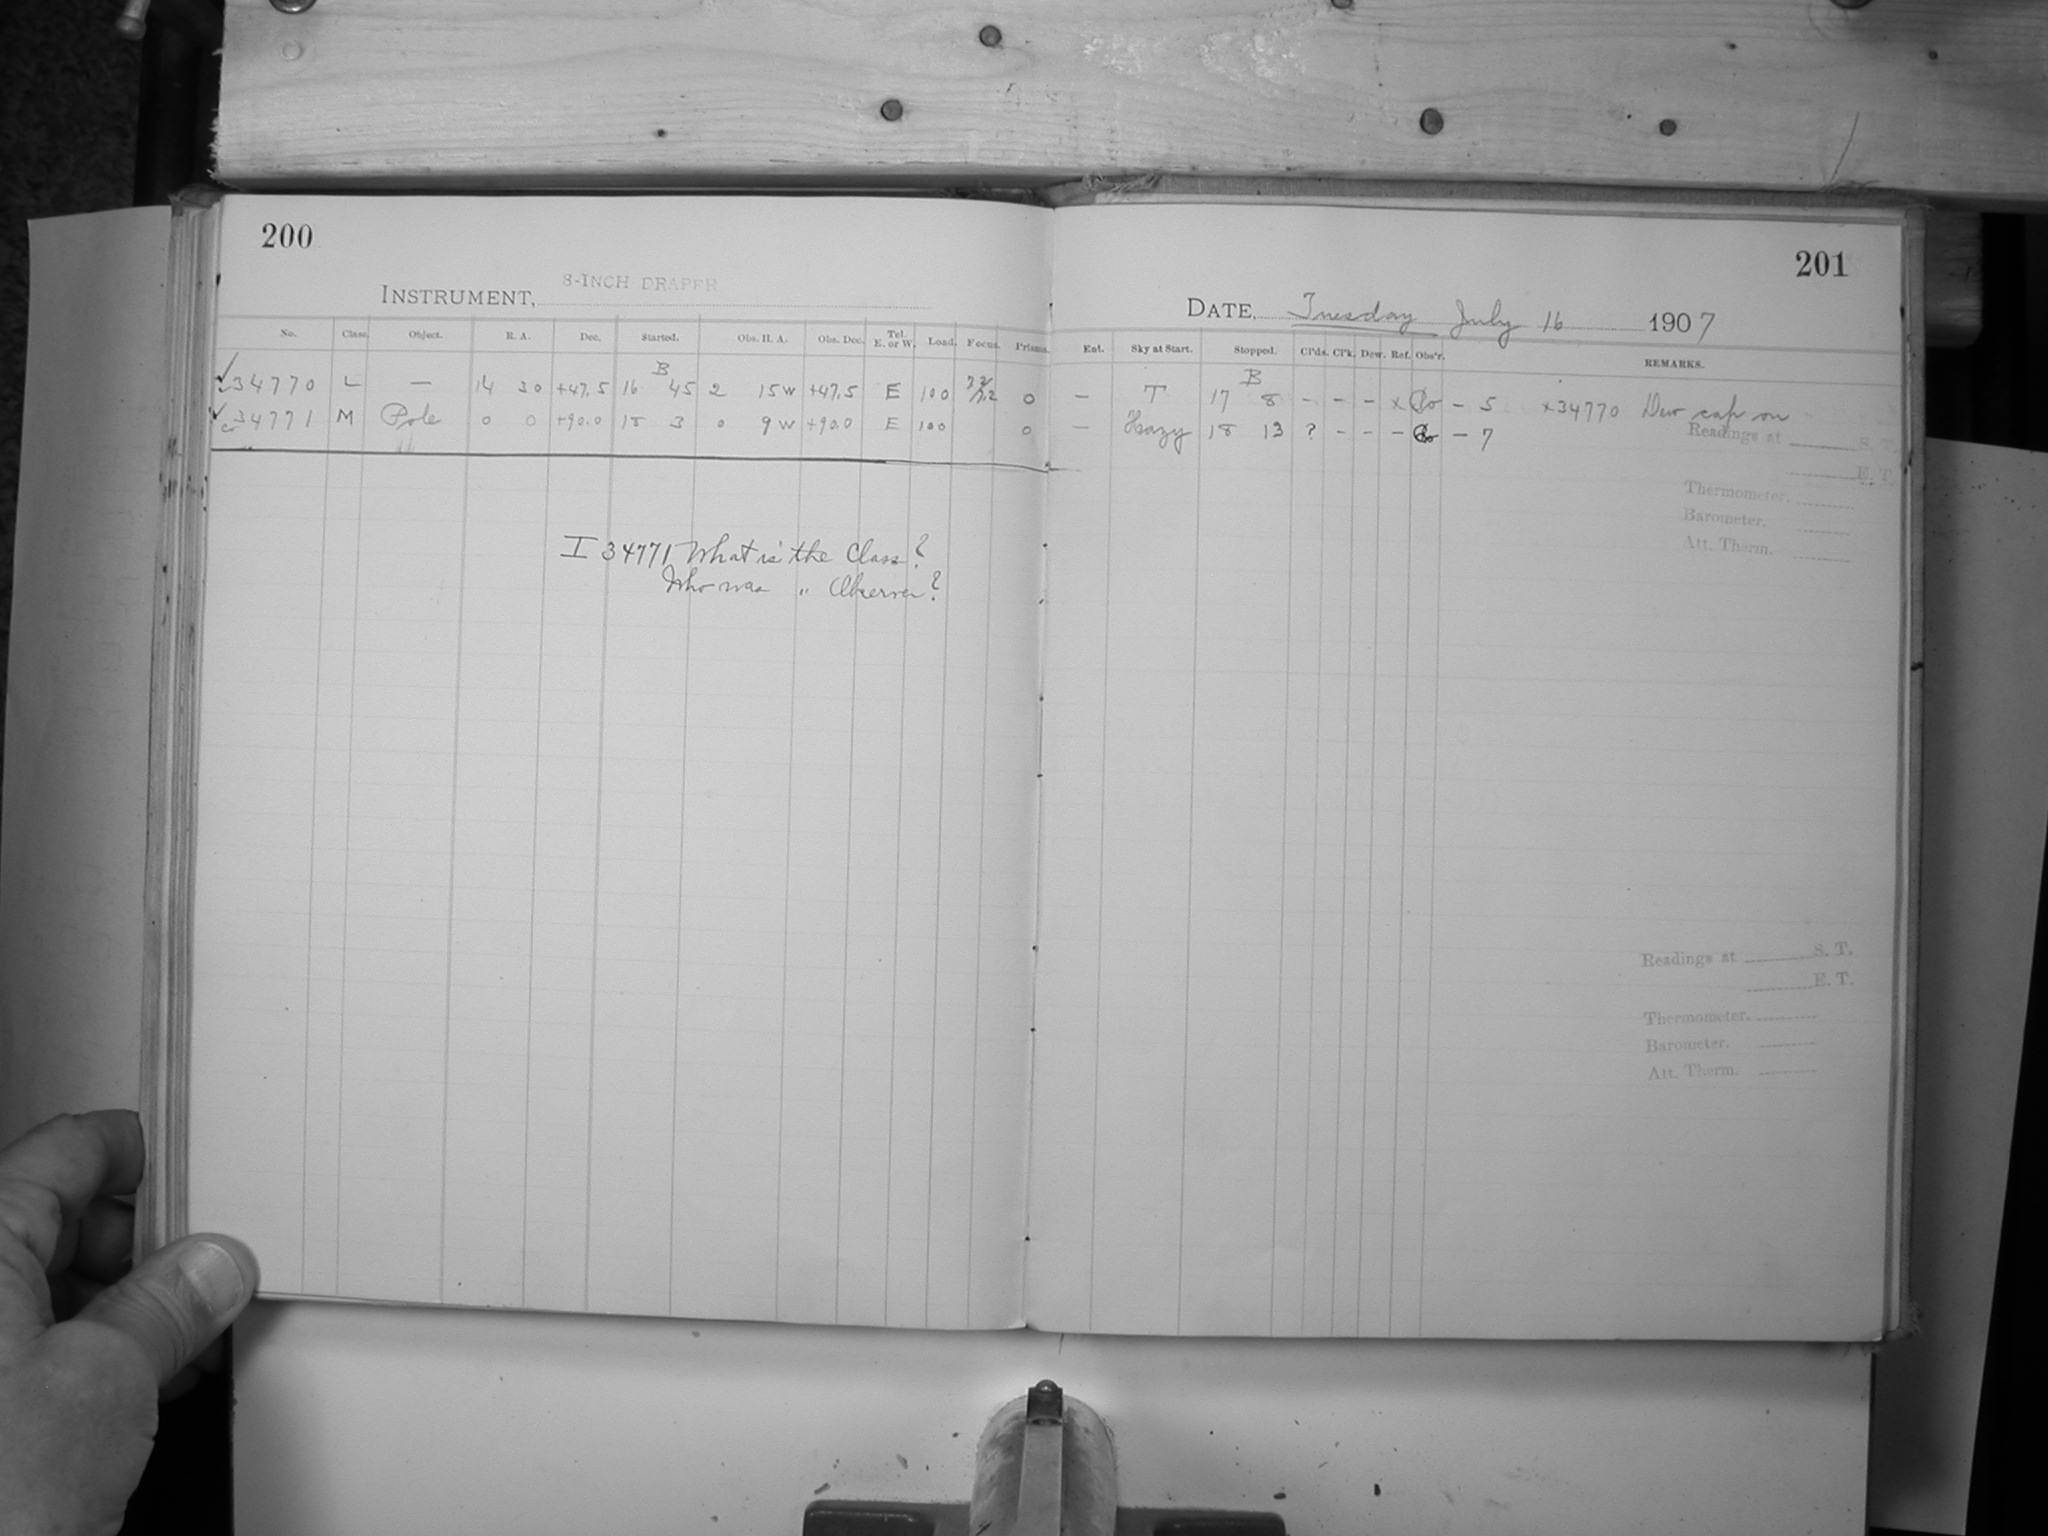 200
8-INCH DRAPER
INSTRUMENT,
No. Class. Object. R. A. Dec. Started. Obs. H. A. Obs. Dec. Tel. E. or W. Load. Focus. Prisms.
B
34770 L — 14 30 +47.5 16 45 2 15 W +47.5 E 100 0
34771 M Pole 0 0 +90.0 18 3 0 9 W +90.0 E 100 0
I 34771 What is the Class?
Who was " Observer?
201
DATE, Tuesday July 16 1907
Ent. Sky at Start. Stopped. Cl'ds. Cl'k. Dew. Ref. Obs'r. REMARKS.
B
— T 17 8 - - - x - 5 x34770 Dew cap on
— Hazy 18 13 ? - - - - 7
Readings at S. T.
E. T.
Thermometer.
Barometer.
Att. Therm.
Readings at S. T.
E. T.
Thermometer.
Barometer.
Att. Therm.